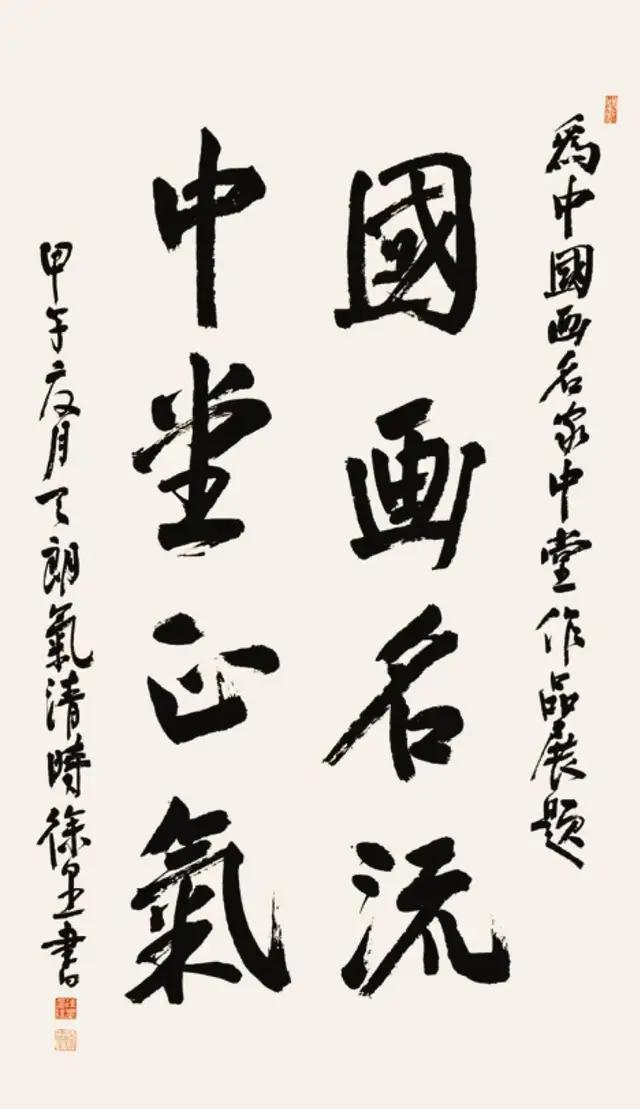 為中國画名家中堂作品展題
國画名流
中堂正氣
甲午夏月天朗氣清時徐里書